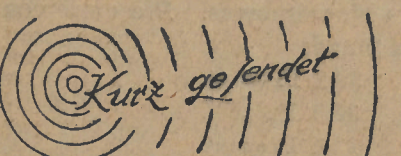 Kurz gesendet